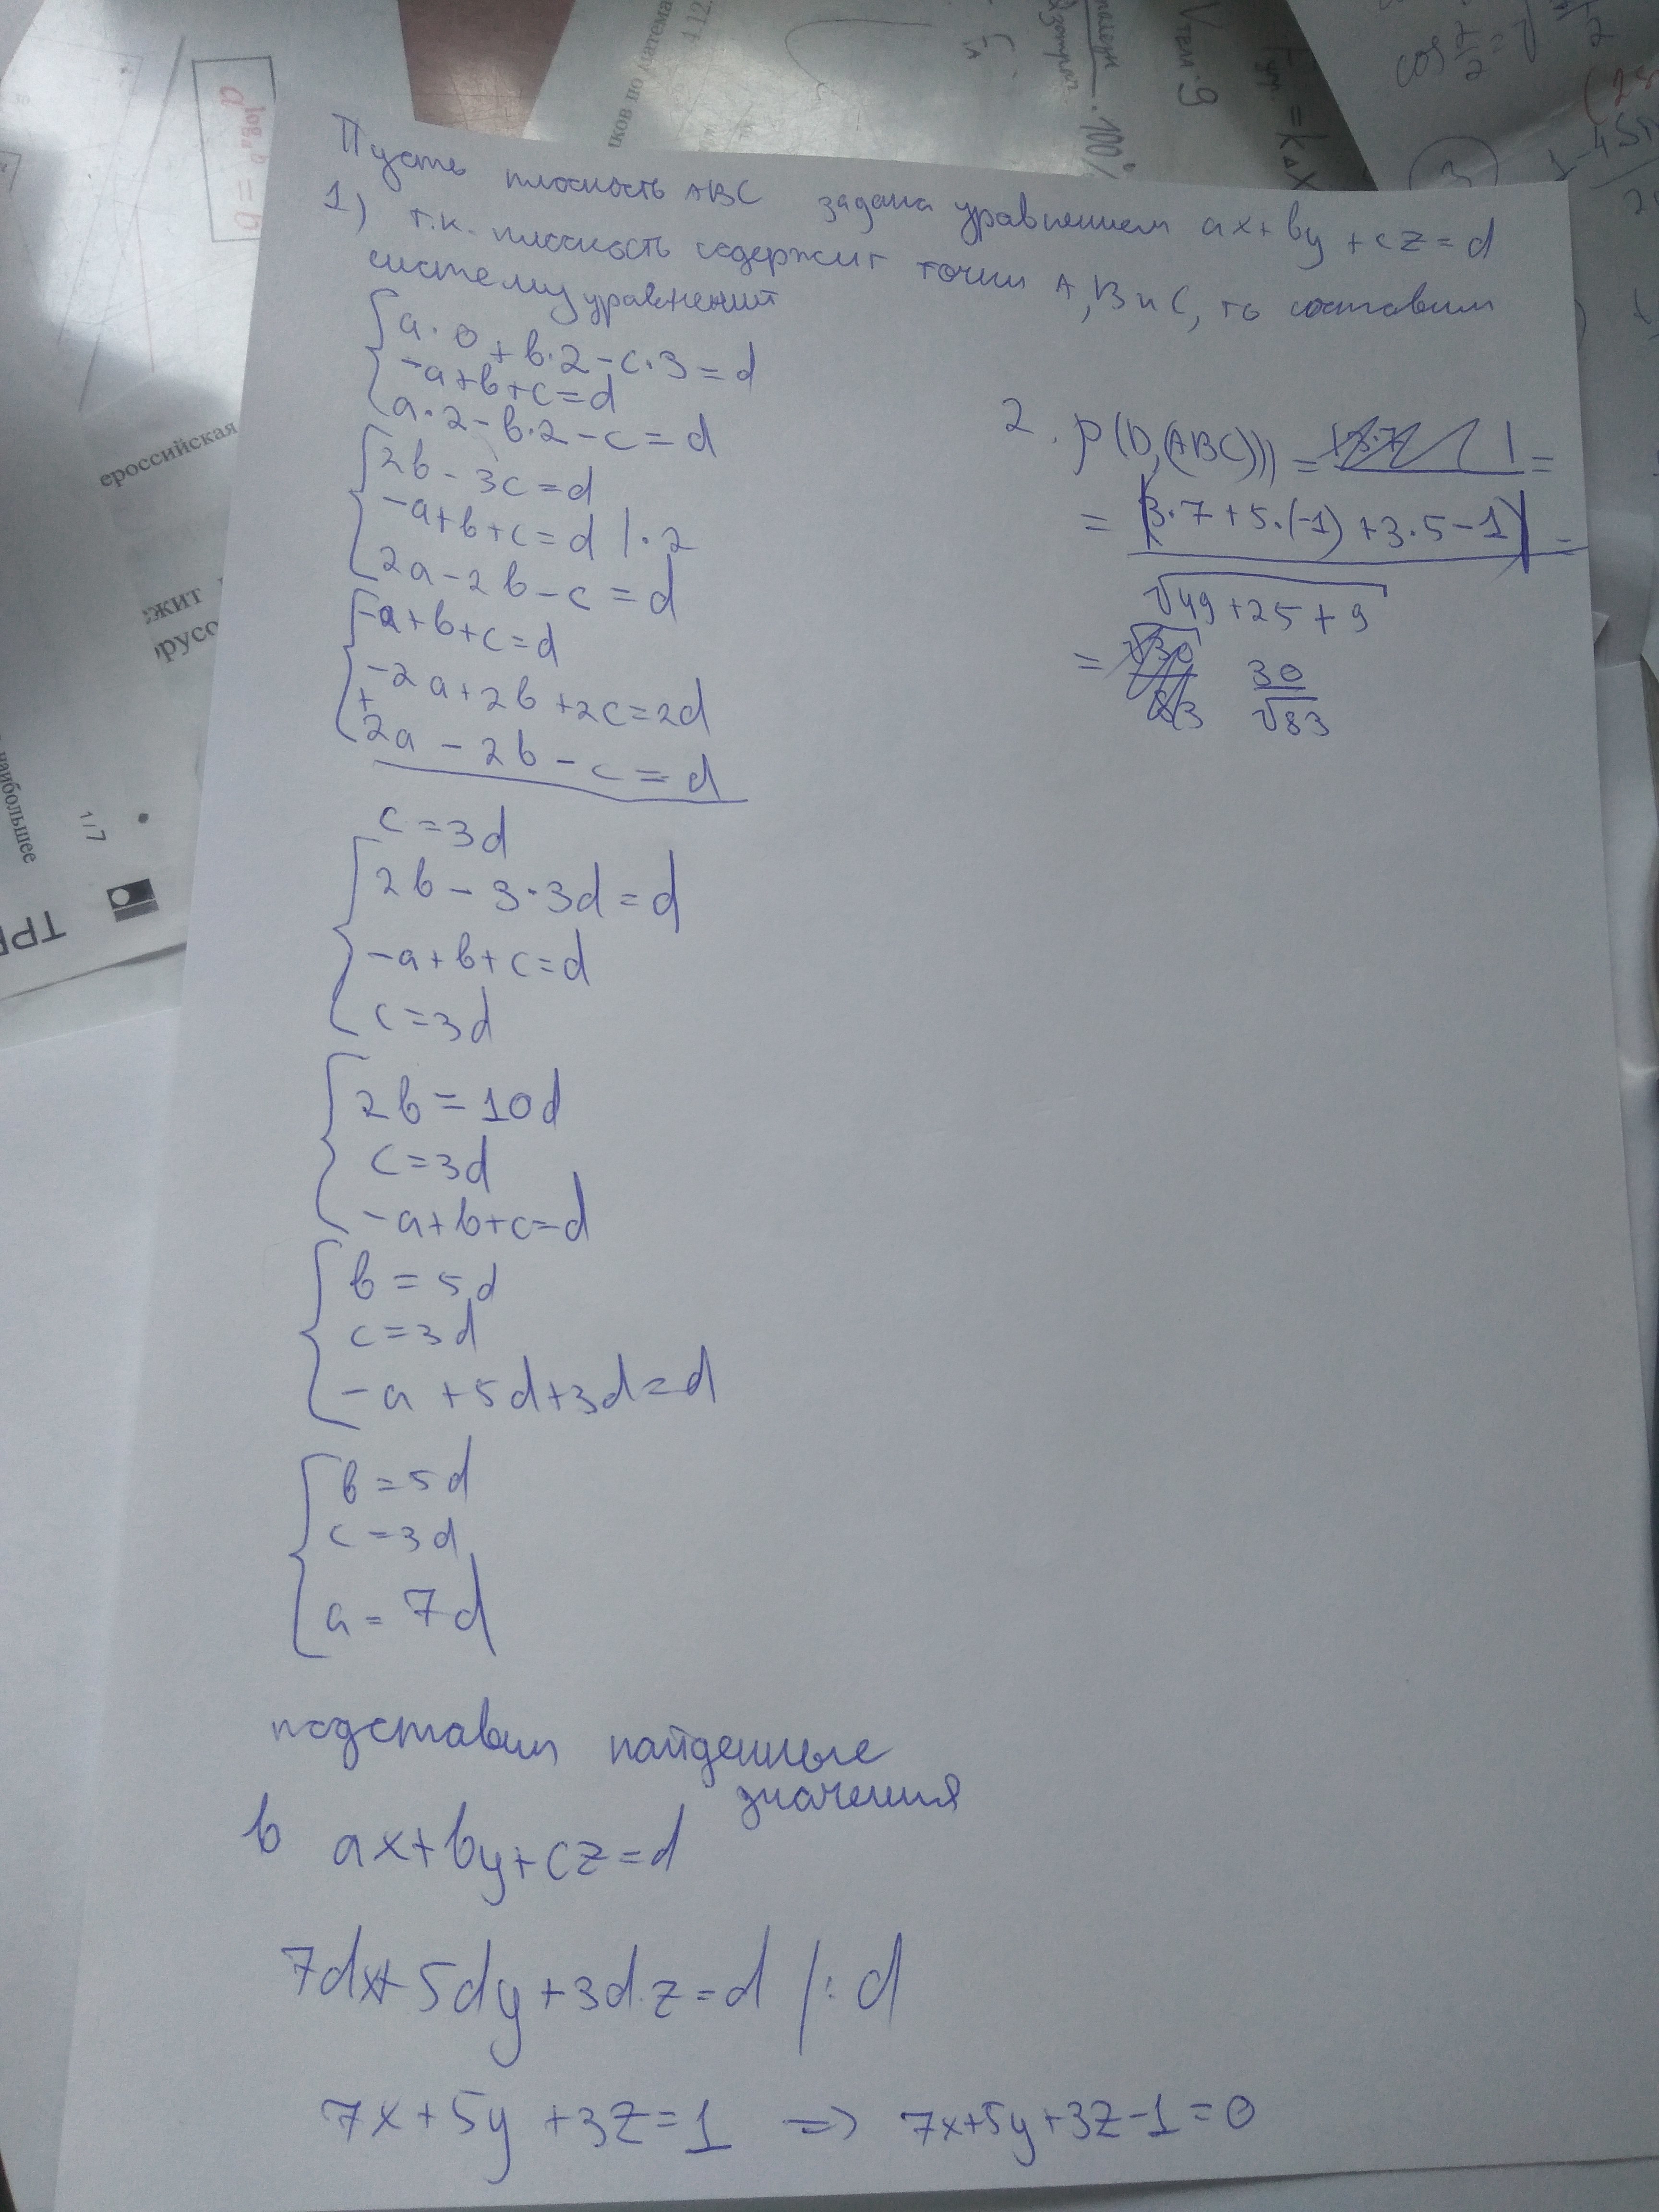 Пусть плоскость ABC задана уравнением ax+by+cz=d
1) т.к. плоскость содержит точки A, B и C, то составим
систему уравнений
a·0+b·2-c·3=d
-a+b+c=d
a·2-b·2-c=d
2b-3c=d
-a+b+c=d |·2
2a-2b-c=d
-a+b+c=d
-2a+2b+2c=2d
+
2a-2b-c=d
c=3d
2b-3·3d=d
-a+b+c=d
c=3d
2b=10d
c=3d
-a+b+c=d
b=5d
c=3d
-a+5d+3d=d
b=5d
c=3d
a=7d
подставим найденные
значения
в ax+by+cz=d
7dx+5dy+3d·z=d /:d
7x+5y+3z=1 => 7x+5y+3z-1=0
2. ρ(D,(ABC))=
=
= |3·7+5·(-1)+3·5-1| =
√49+25+9
= 30
√83
a^log_a b = b
ков по матема
4.12.
·100%
V тела·9
=kΔx
cos
3
ероссийская
жит
орусо
наибольшее
1/7
ТР